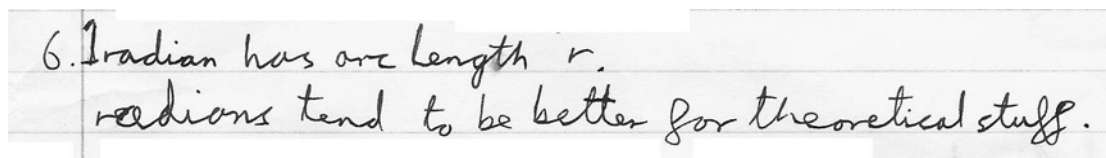 6. 1 radian has arc length r.
radians tend to be better for theoretical stuff.